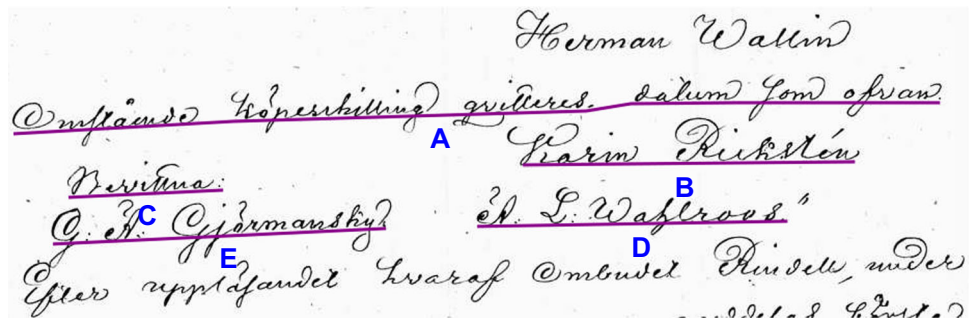 Herman Wallin
Omstående köpeskilling qvitteras, datum som ofvan.
A
Karin Rickstén
Bevittna:
B
C
G. A. Gjörmansky A. L. Wahlroos"
E D
Efter uppläsandet hvaraf Ombudet Rindell, under